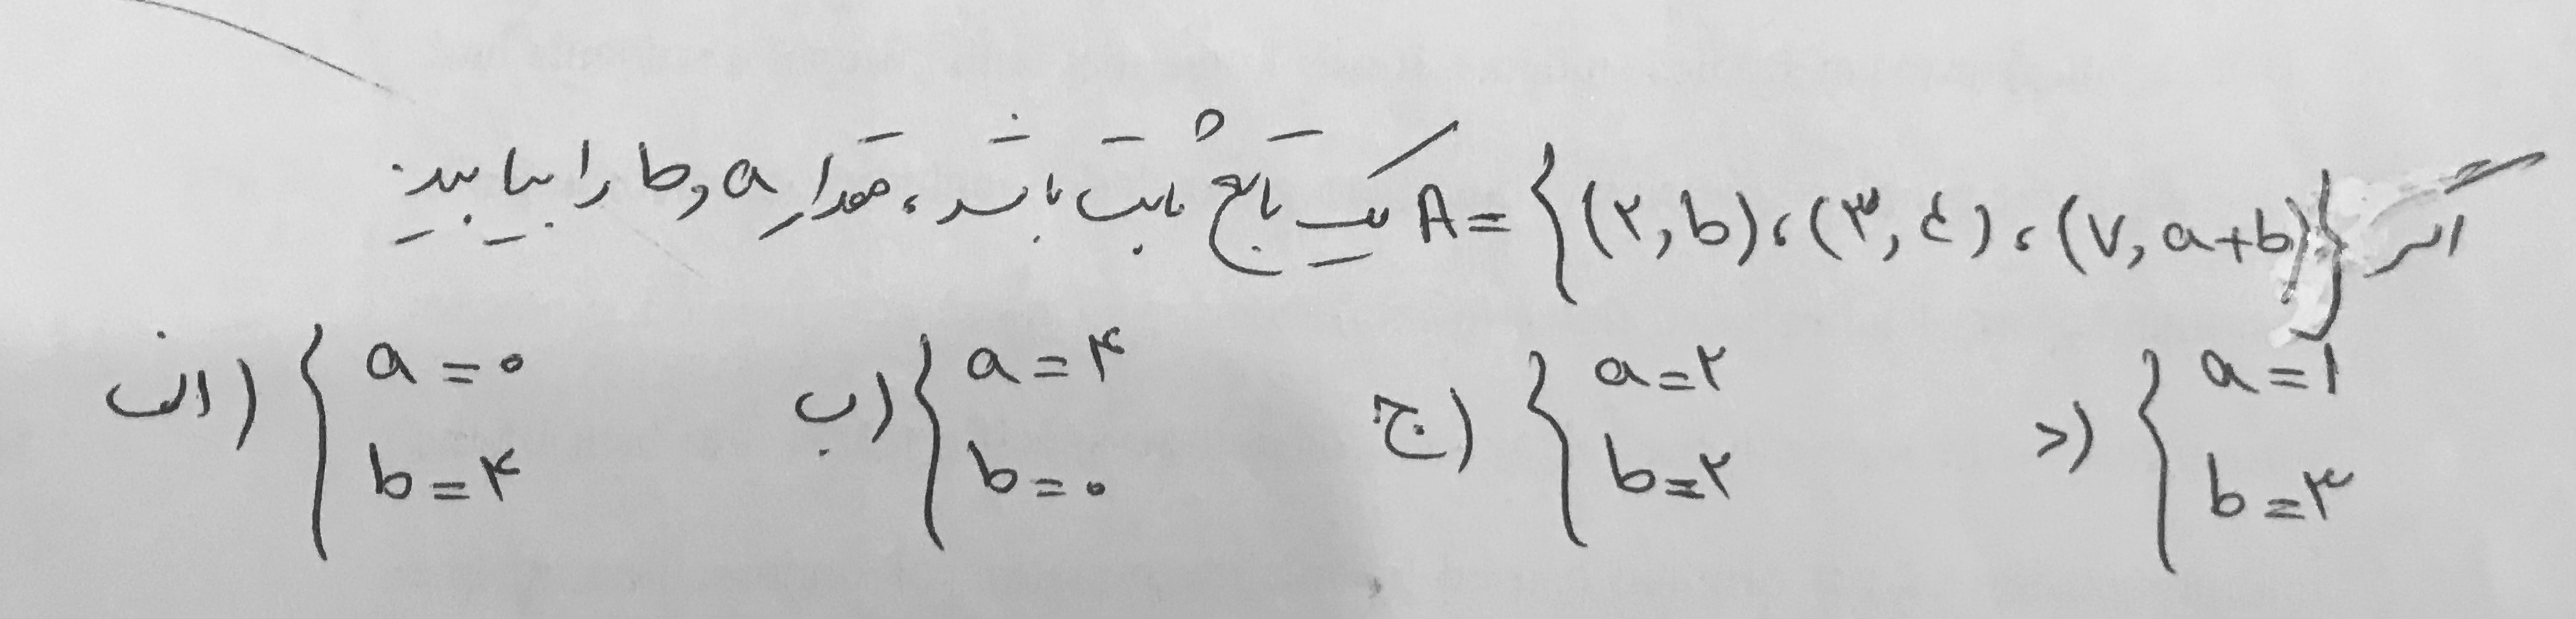 اگر A = {(۲, b)، (۳, ٤)، (۷, a+b)} یک تابع ثابت باشد، مقدار a و b را بیابید.
الف) { a = ۰ ب) { a = ۴ ج) { a = ۲ د) { a = ۱
b = ۴ b = ۰ b = ۲ b = ۳